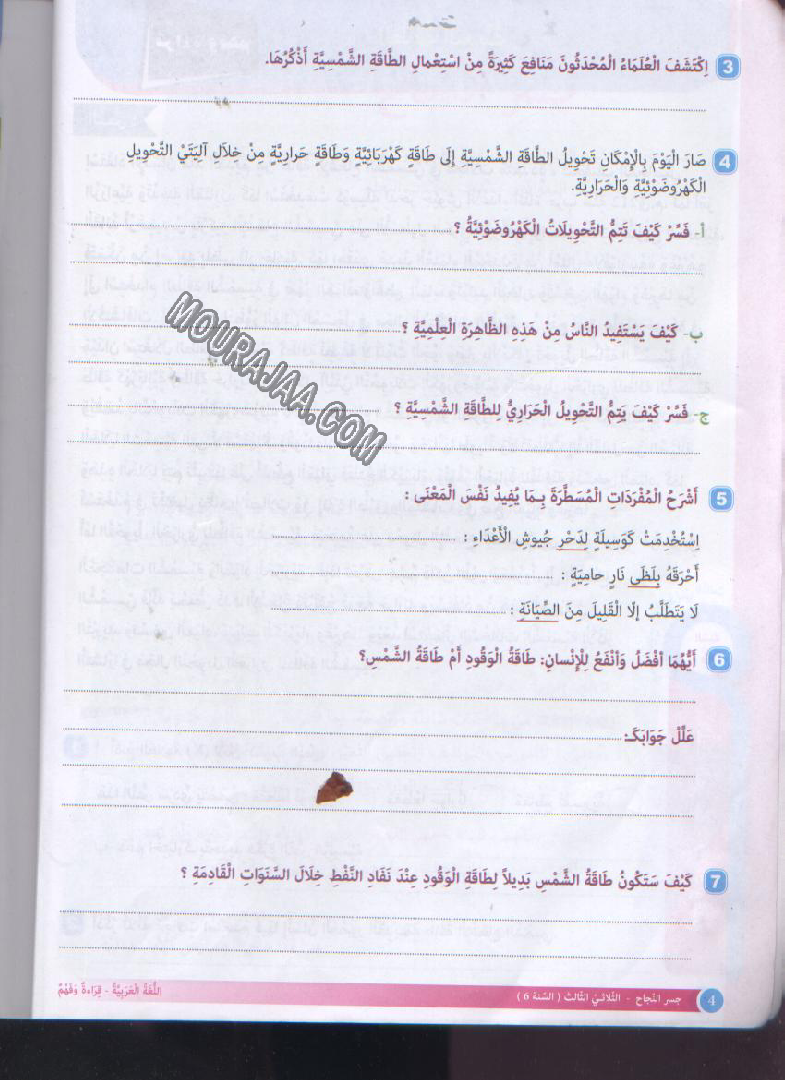 3 اِكْتَشَفَ الْعُلَمَاءُ الْمُحْدَثُونَ مَنَافِعَ كَثِيرَةً مِنْ اسْتِعْمالِ الطَّاقَةِ الشَّمْسِيَّةِ أَذْكُرُهَا.
4 صَارَ الْيَوْمَ بِالْإِمْكَانِ تَحْوِيلُ الطَّاقَةِ الشَّمْسِيَّةِ إِلَى طَاقَةٍ كَهْرَبَائِيَّةٍ وَطَاقَةٍ حَرَارِيَّةٍ مِنْ خِلَالِ آلِيَتَيْ التَّحْوِيلِ
الْكَهْرُوضَوْئِيَّةِ وَالْحَرَارِيَّةِ.
أ- فَسِّرْ كَيْفَ تَتِمُّ التَّحْوِيلَاتُ الْكَهْرُوضَوْئِيَّةُ ؟
ب- كَيْفَ يَسْتَفِيدُ النَّاسُ مِنْ هَذِهِ الظَّاهِرَةِ الْعِلْمِيَّةِ ؟
MOURAJAA.COM
ج- فَسِّرْ كَيْفَ يَتِمُّ التَّحْوِيلُ الْحَرَارِيُّ لِلطَّاقَةِ الشَّمْسِيَّةِ ؟
5 أَشْرَحُ الْمُفْرَدَاتِ الْمُسَطَّرَةَ بِمَا يُفِيدُ نَفْسَ الْمَعْنَى :
اِسْتُخْدِمَتْ كَوَسِيلَةٍ لِدَحْرِ جُيوشِ الْأَعْدَاءِ :
أَحْرَقَهُ بِلَظَى نَارٍ حامِيَةٍ :
لَا يَتَطَلَّبُ إلَّا الْقَلِيلَ مِنَ الصِّيَانَةِ :
6 أَيُّهُمَا أَفْضَلُ وَأَنْفَعُ لِلْإِنْسانِ: طَاقَةُ الْوَقُودِ أَمْ طَاقَةُ الشَّمْسِ؟
عَلِّلْ جَوَابَكَ:
7 كَيْفَ سَتَكُونُ طَاقَةُ الشَّمْسِ بَدِيلاً لِطَاقَةِ الْوَقُودِ عِنْدَ نَفَادِ النَّفْطِ خِلَالَ السَّنَوَاتِ الْقَادِمَةِ ؟
4 جسر النجاح - الثلاثي الثالث ( السّنة 6 )
اللُّغَةُ الْعَرَبِيَّةُ - قِرَاءَةٌ وَفَهْمٌ